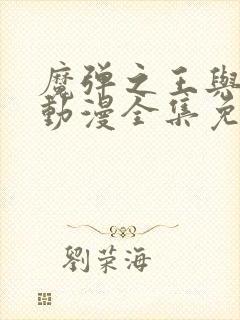 魔弹之王與
動漫全集免
劉荣海